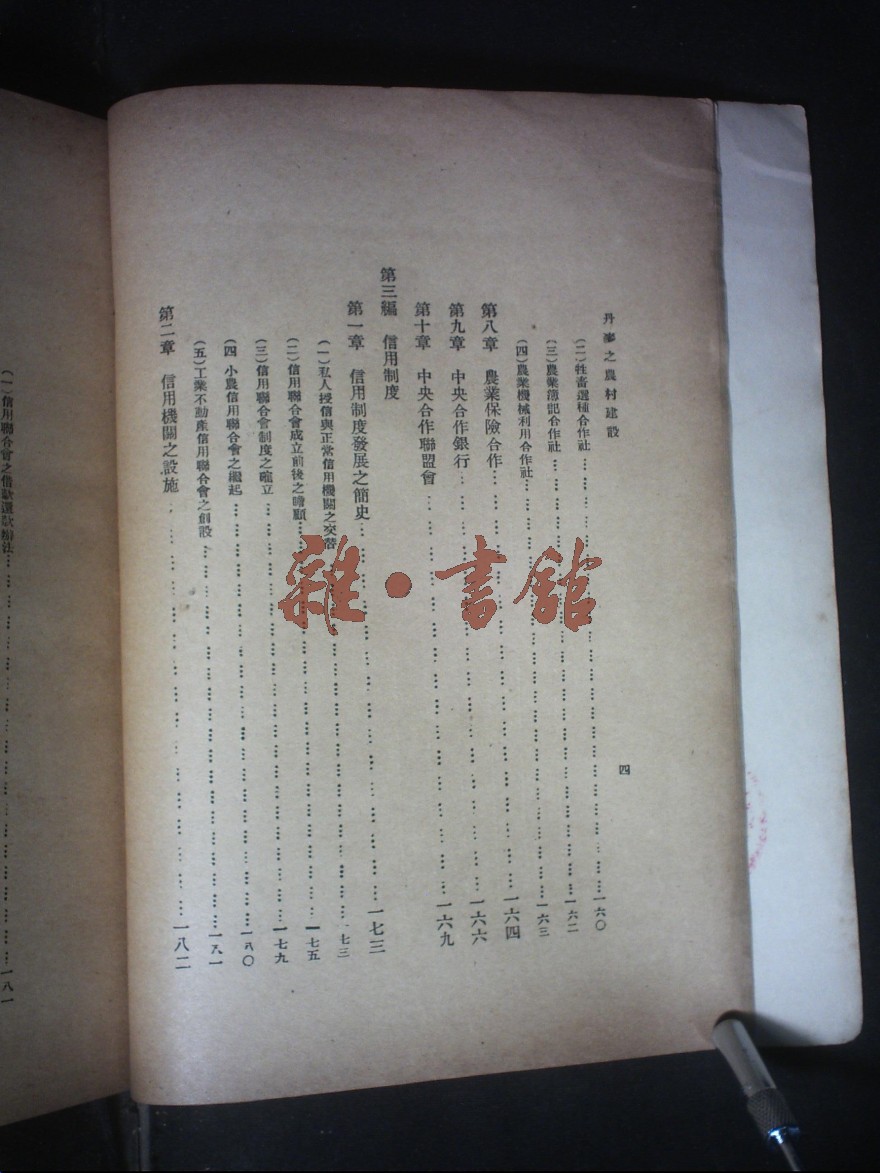 丹麥之農村建設
四
(二)牲畜選種合作社……一六〇
(三)農業簿記合作社……一六二
(四)農業機械利用合作社……一六三
第八章 農業保險合作……一六四
第九章 中央合作銀行……一六六
第十章 中央合作聯盟會……一六九
第三編 信用制度
第一章 信用制度發展之簡史……一七三
(一)私人授信與正常信用機關之交替……一七三
(二)信用聯合會成立前後之瞻顧……一七五
(三)信用聯合會制度之確立……一七九
(四 小農信用聯合會之繼起……一八〇
(五)工業不動產信用聯合會之創設……一八一
第二章 信用機關之設施……一八二
(一)信用聯合會之借款還款辦法……一八一
雜·書館